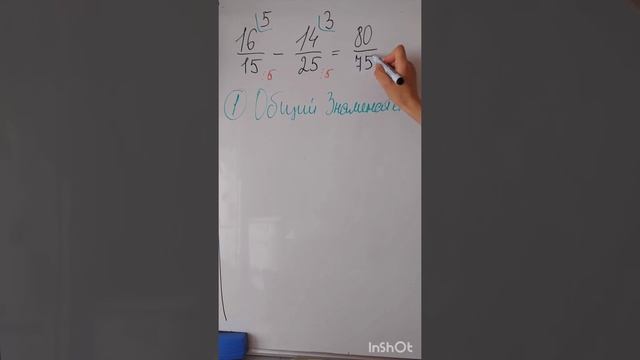 16/15 ⌊5 - 14/25 ⌊3 = 80/75
:5 :5
① Общий Знаменат
InShOt